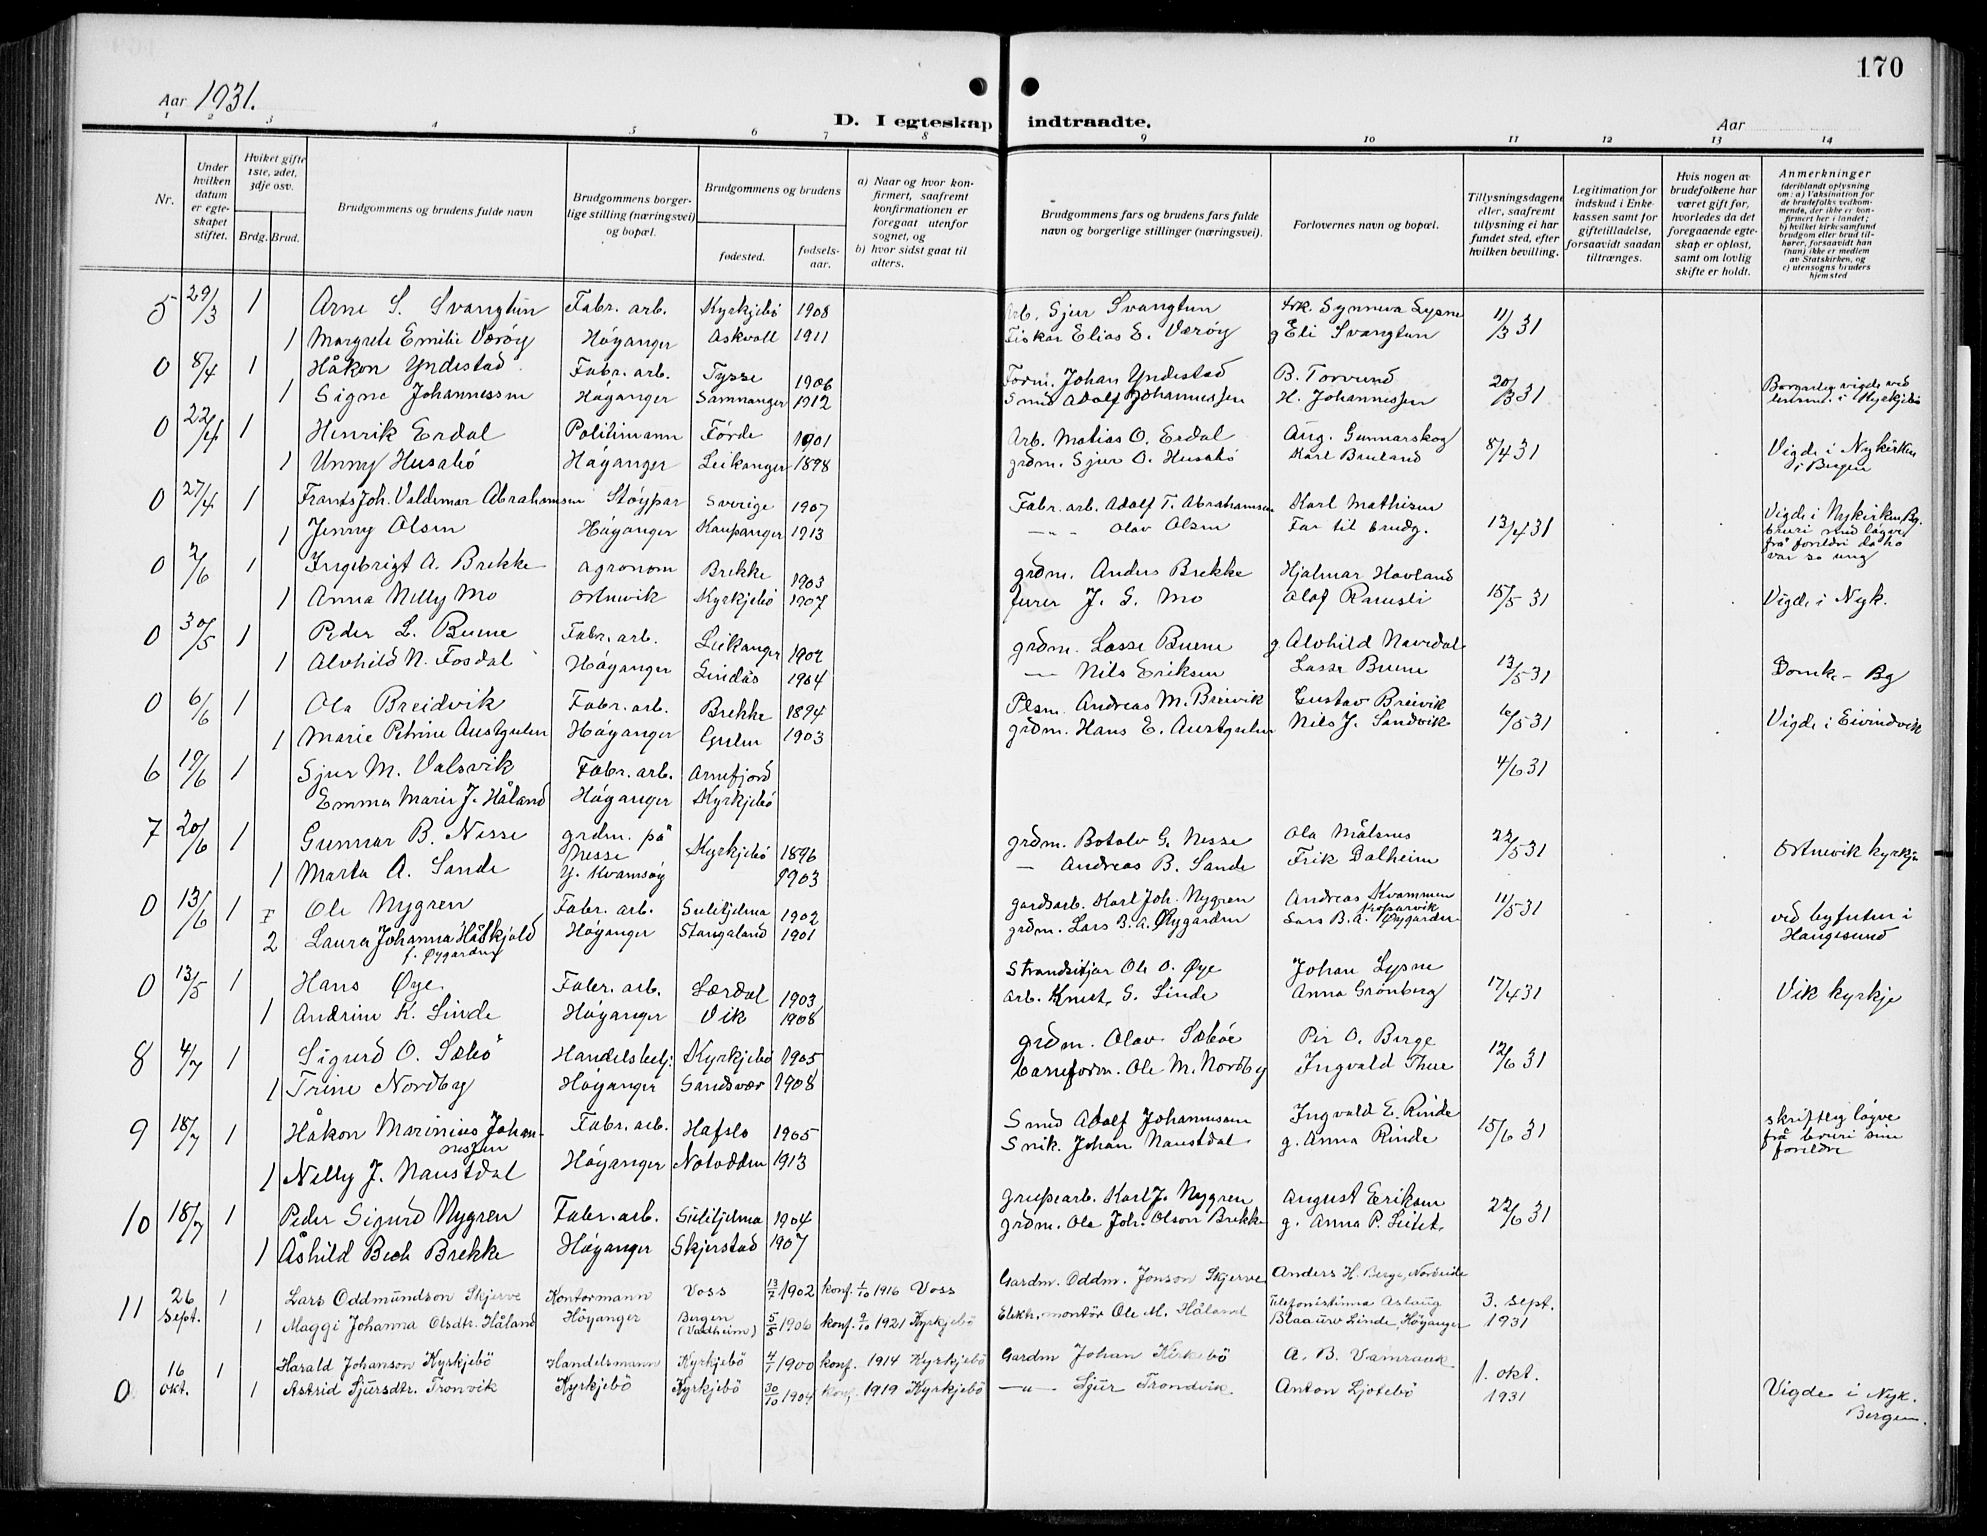 170
Aar 1931.
D. I egteskap indtraadte.
Aar
1 2 3 4 5 6 7 8 9 10 11 12 13 14
Nr.
Under hvilken datum er egteskapet stiftet.
Hvilket gifte 1ste, 2det, 3dje osv.
Brdg. Brud.
Brudgommens og brudens fulde navn
Brudgommens borgerlige stilling (næringsvei) og bopæl.
Brudgommens og brudens
fødested.
fødselsaar.
a) Naar og hvor konfirmert, saafremt konfirmationen er foregaat utenfor sognet, og
b) hvor sidst gaat til alters.
Brudgommens fars og brudens fars fulde navn og borgerlige stillinger (næringsvei).
Forlovernes navn og bopæl.
Tillysningsdagene eller, saafremt tillysning ei har fundet sted, efter hvilken bevilling.
Legitimation for indskud i Enkekassen samt for giftetilladelse, forsaavidt saadan tiltrænges.
Hvis nogen av brudefolkene har været gift før, hvorledes da det foregaaende egteskap er opløst, samt om lovlig skifte er holdt.
Anmerkninger (deriblandt oplysning om: a) Vaksination for de brudefolks vedkommende, der ikke er konfirmert her i landet; b) hvilket kirkesamfund brudgom eller brud tilhører, forsaavidt han (hun) ikke er medlem av Statskirken, og c) utensogns bruders hjemsted
5 29/3 1 Arne S. Svangtun Fabr. arb. Kyrkjebö 1908 Arb. Sjur Svangtun frk. Synneva Lysne 11/3 31
1 Margrete Emilie Værøy Höyanger Askvoll 1911 Fiskar Elias E. Værøy g Eli Svangtun
0 8/4 1 Håkon Yndestad Fabr. arb. Tysse 1906 Form. Johan Yndestad B. Torvund 20/3 31
1 Signe Johannessen Höyanger Samnanger 1912 Smed Adolf Johannessen H. Johannessen
Borgarleg vigde ved lensm. i Kyrkjebö
0 22/4 1 Henrik Erdal Politimann Förde 1901 Arb. Matias O. Erdal Aug. Gunnarskog 8/4 31
1 Unny Husabö Höyanger Leikanger 1898 grdm. Sjur O. Husabö Karl Bruland
Vigde i Nykirken i Bergen
0 27/4 1 Frants Joh. Valdemar Abrahamsen Stöypar Sverige 1907 Fabr. arb. Adolf T. Abrahamsen Karl Mathisen 13/4 31
1 Jenny Olsen Höyanger Kaupanger 1913 — " — Olav Olsen Far til brudg.
Vigde i Nykirken Bg. bruri med løgve frå foreldri då ho var so ung
0 2/6 1 Ingebrigt A. Brekke agronom Brekke 1903 grdm. Anders Brekke Hjalmar Hovland 15/5 31
1 Anna Nelly Mo Ortnevik Kyrkjebö 1907 furer J. S. Mo Olaf Ramsli
Vigde i Nyk.
0 30/5 1 Peder L. Buene Fabr. arb. Leikanger 1902 grdm. Lasse Buene g Alvhild Navedal 13/5 31
1 Alvhild N. Fosdal Höyanger Lindås 1904 — Nils Eriksen Lasse Buene
Domk - Bg
0 6/6 1 Ola Breidvik Fabr. arb. Brekke 1894 Plsm. Andreas M. Breivik Gustav Breivik 16/5 31
1 Marie Petrine Austgulen Höyanger Gulen 1903 grdm. Hans E. Austgulen Nils J. Sandvik
Vigde i Eivindvik
6 19/6 1 Sjur M. Valsvik Fabr. arb. Arnefjord 4/6 31
Emma Marie J. Håland Höyanger Kyrkjebö
7 20/6 1 Gunnar B. Nesse grdm. på Nesse Kyrkjebö 1896 grdm. Botolv G. Nesse Ola Målsnes 22/5 31
1 Marta A. Sande y. Kvamsøy 1903 — Andreas B. Sande Frik Dalheim
Ortnevik kyrkje
0 13/6 1 Ole Nygren Fabr. arb. Sulitjelma 1902 gardsarb. Karl Joh. Nygren Andreas Kvammen 11/5 31
2 Laura Johanna Håskjold f. Øygarden Höyanger Stangaland 1901 grdm. Lars B. A. Øygarden Lars B. A. Øygarden
ved byfuten i Haugesund
0 13/5 1 Hans Øye Fabr. arb. Lærdal 1903 Strandsitjar Ole O. Øye Johan Lysne 17/4 31
1 Andrine K. Linde Höyanger Vik 1908 arb. Knut S. Linde Anna Grönberg
Vik kyrkje
8 4/7 1 Sigurd O. Sæbö Handelsbetj. Kyrkjebö 1905 grdm. Olav Sæbøe Per O. Berge 12/6 31
1 Trine Nordby Höyanger Sandsvær 1908 baneform. Ole M. Nordby Ingvald Thue
9 18/7 1 Håkon Marinius Johannessen Fabr. arb. Hafslo 1905 Smed Adolf Johannessen Ingvald E. Rinde 15/6 31
1 Nelly J. Naustdal Höyanger Notodden 1913 Snik. Johan Naustdal g. Anna Rinde
skriftleg løgve frå bruri sine foreldre
10 18/7 1 Peder Sigurd Nygren Fabr. arb. Sulitjelma 1904 grubearb. Karl J. Nygren August Eriksen 22/6 31
1 Åshild Bech Brekke Höyanger Skjerstad 1907 grdm. Ole Joh. Olson Brekke g. Anna P.
11 26 Sept. 1 Lars Oddmundson Skjerve Kontormann Voss 13/7 1902 konf. 1/10 1916 Voss Gardm. Oddm. Jonson Skjerve Anders H. Berge, Nordeide 3. sept. 1931
1 Maggi Johanna Olsdtr. Håland Höyanger Bergen (Vadheim) 5/5 1906 konf. 9/10 1921 Kyrkjebö Elektr. montör Ole M. Håland Telefonistinna Aslaug Blaauw Linde, Höyanger
0 16 okt. 1 Harald Johanson Kyrkjebö Handelsmann Kyrkjebö 4/1 1900 konf. 1914 Kyrkjebö Gardm Johan Kirkebö A. B. Vamraak 1. okt. 1931
1 Astrid Sjursdtr. Tronvik Kyrkjebö Kyrkjebö 30/10 1904 konf. 1919 Kyrkjebö —"— Sjur Trondvik Anton Ljotebö
Vigde i Nyk. Bergen.